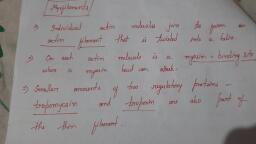 Myofilaments
→ Individual actin molecules join to form an
actin filament that is twisted into a helix.
→ On each actin molecule is a myosin-binding site
where a myosin head can attach.
→ Smaller amounts of two regulatory proteins -
tropomyosin and troponin are also part of
the thin filament.